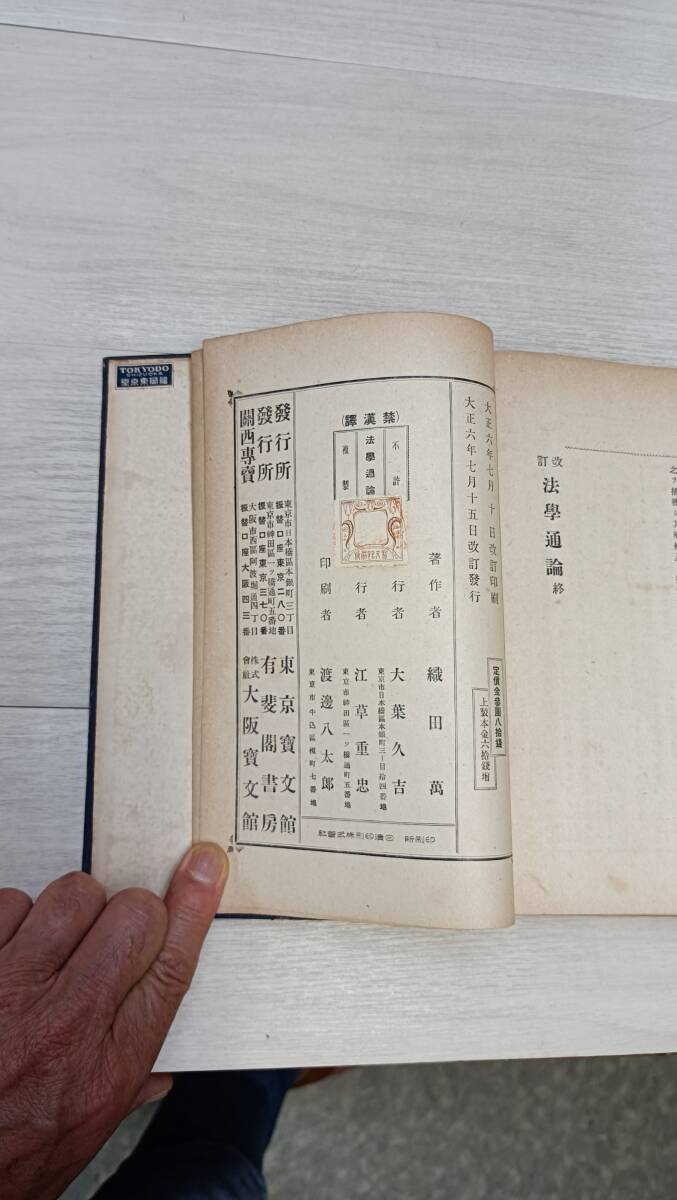 改訂 法學通論 終
大正六年七月十日改訂印刷
大正六年七月十五日改訂發行
定價金參圓八拾錢
上製本金六拾錢增
(禁漢譯)
不許
法學通論
複製
著作者 織田萬
行者 大葉久吉
東京市日本橋區本銀町三丁目拾四番地
行者 江草重忠
東京市神田區一ツ橋通町五番地
印刷者 渡邊八太郎
東京市牛込區榎町七番地
印刷所 日清印刷株式會社
發行所 東京市日本橋區本銀町三丁目 振替口座東京二八〇番 東京寶文館
發行所 東京市神田區一ツ橋通町五番地 振替口座東京三七〇番 有斐閣書房
關西專賣 大阪市西區阿波堀通四丁目 振替口座大阪四三番 株式會社 大阪寶文館
TOKYODO
SHIZUOKA